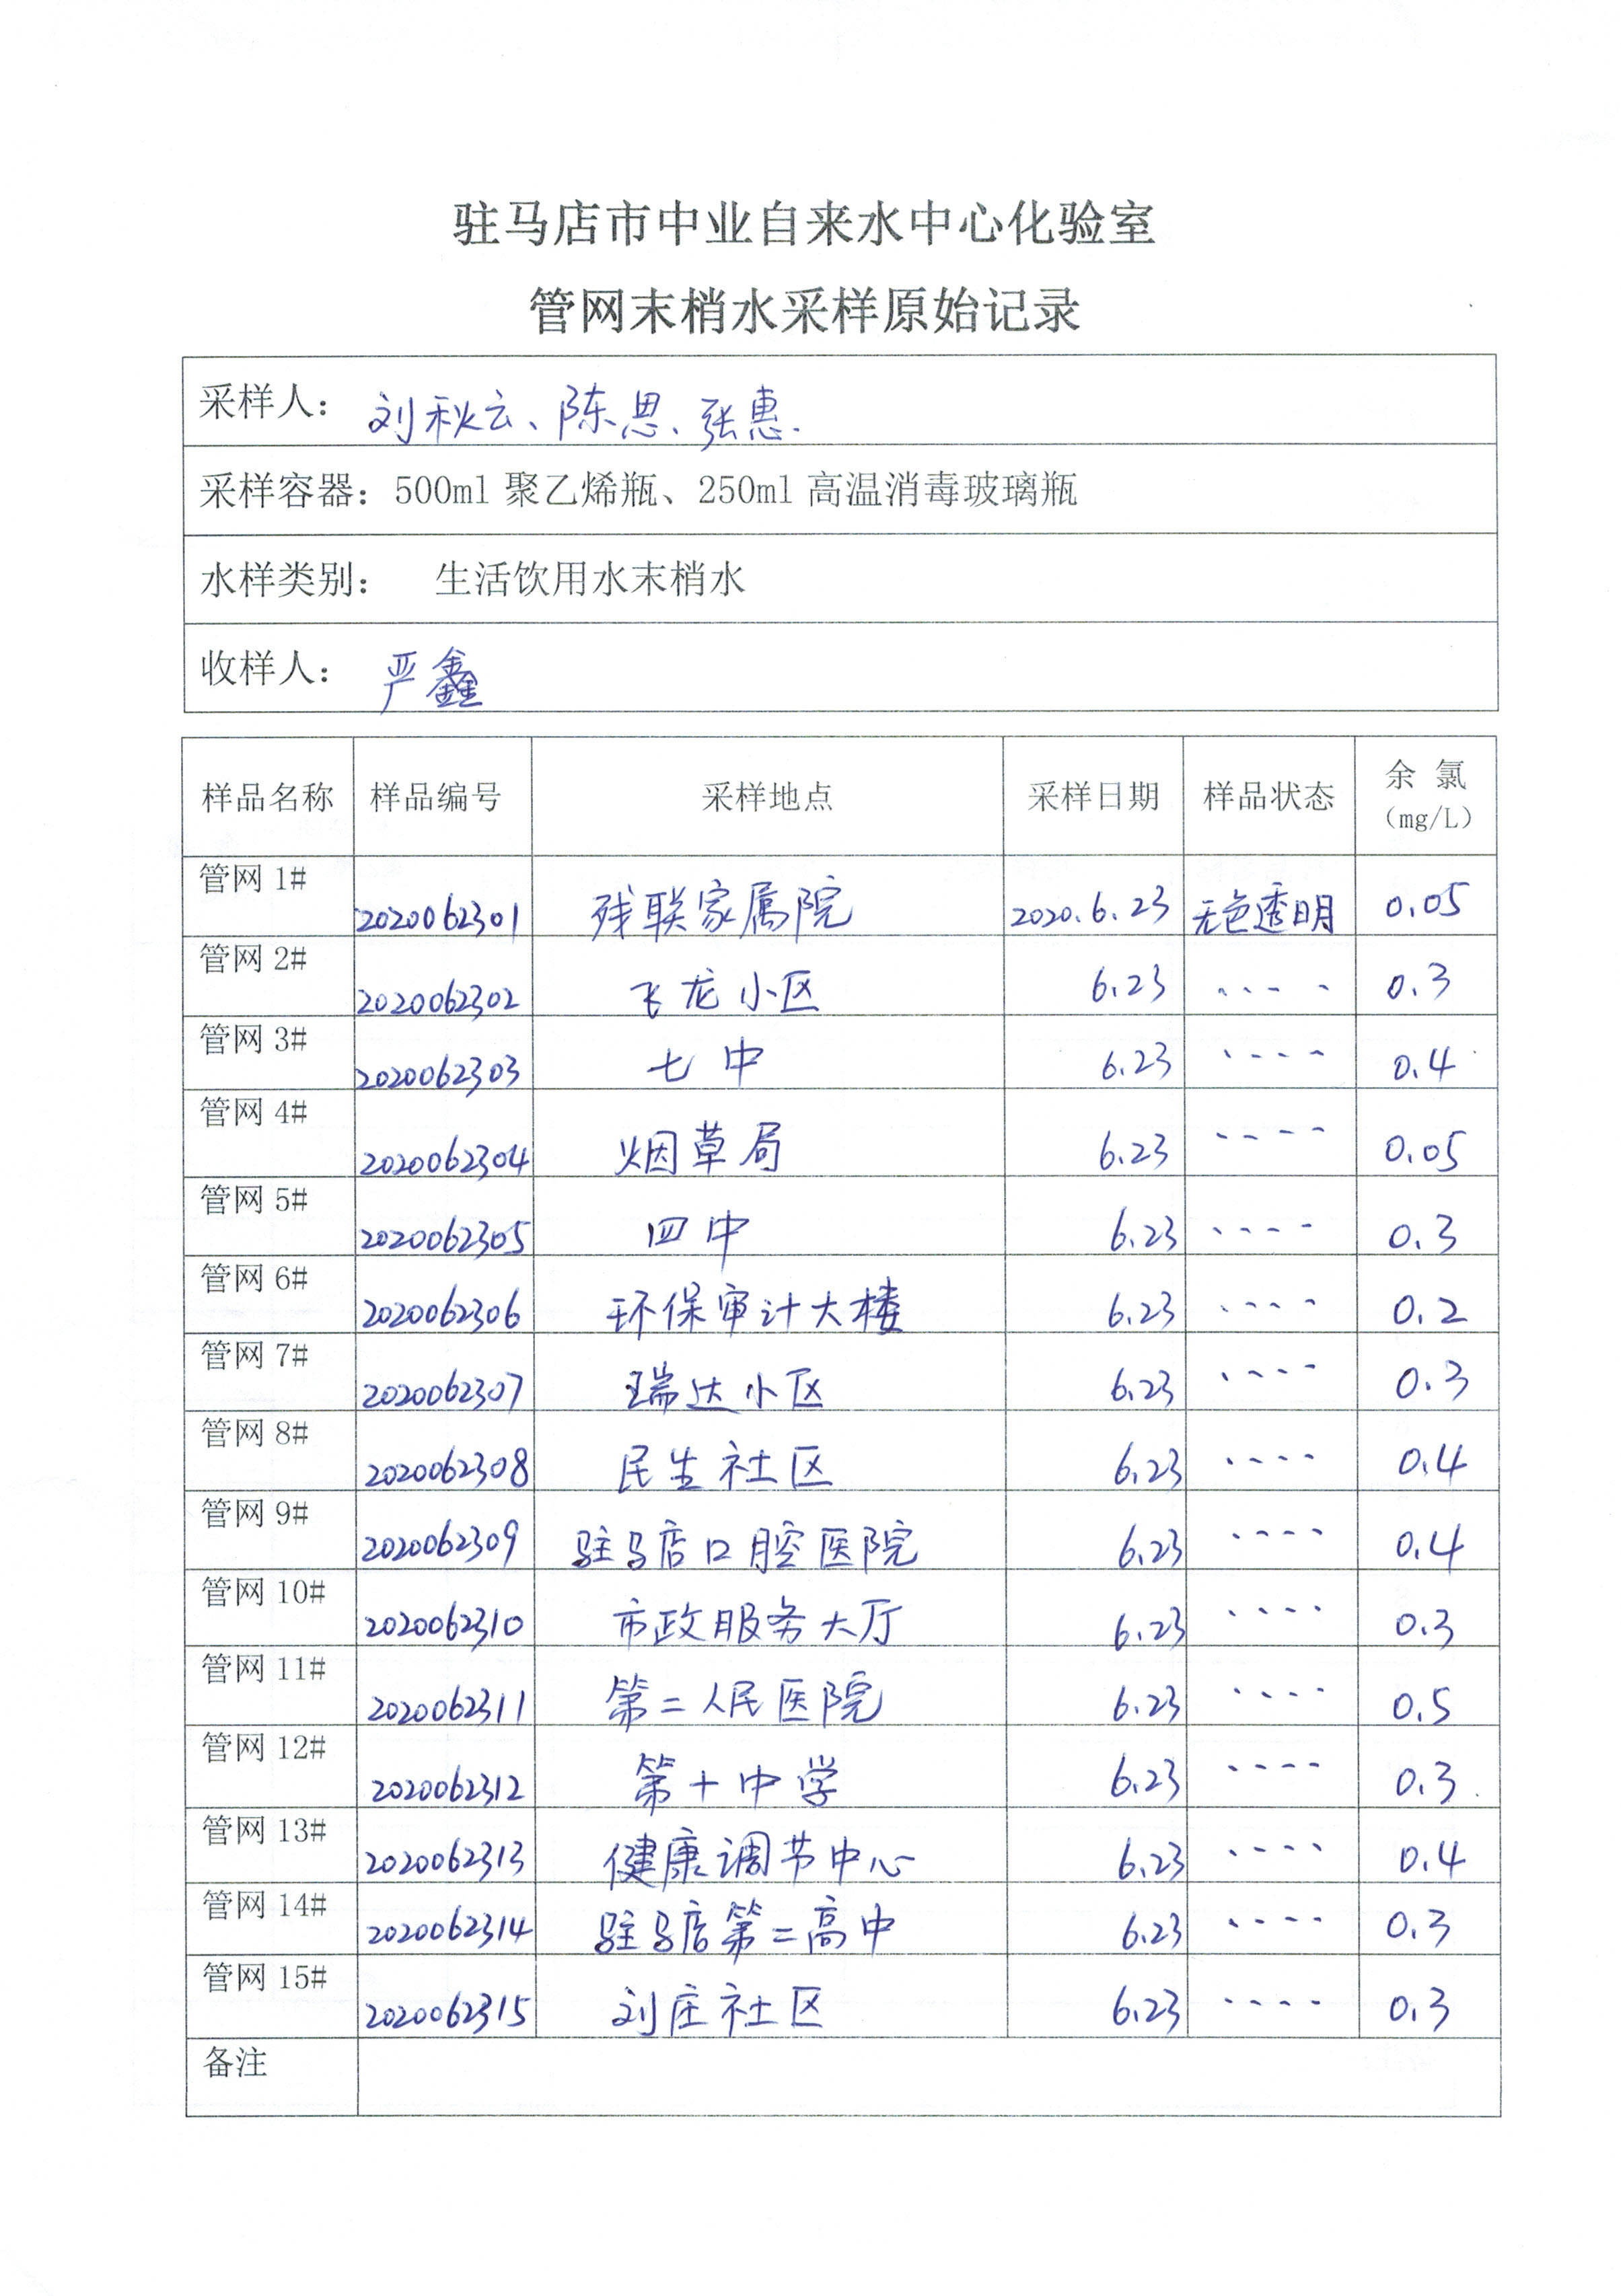 驻马店市中业自来水中心化验室
管网末梢水采样原始记录
采样人： 刘秋云、陈思、张惠.
采样容器：500ml 聚乙烯瓶、250ml 高温消毒玻璃瓶
水样类别： 生活饮用水末梢水
收样人： 严鑫
样品名称 样品编号 采样地点 采样日期 样品状态 余 氯 （mg/L）
管网 1# 2020062301 残联家属院 2020.6.23 无色透明 0.05
管网 2# 2020062302 飞龙小区 6.23 、、-、 0.3
管网 3# 2020062303 七中 6.23 、--- 0.4
管网 4# 2020062304 烟草局 6.23 ---- 0.05
管网 5# 2020062305 四中 6.23 、--- 0.3
管网 6# 2020062306 环保审计大楼 6.23 、--- 0.2
管网 7# 2020062307 瑞达小区 6.23 、--- 0.3
管网 8# 2020062308 民生社区 6.23 、--- 0.4
管网 9# 2020062309 驻马店口腔医院 6.23 、--- 0.4
管网 10# 2020062310 市政服务大厅 6.23 、--- 0.3
管网 11# 2020062311 第二人民医院 6.23 、--- 0.5
管网 12# 2020062312 第十中学 6.23 ---- 0.3
管网 13# 2020062313 健康调节中心 6.23 、--- 0.4
管网 14# 2020062314 驻马店第二高中 6.23 、--- 0.3
管网 15# 2020062315 刘庄社区 6.23 、--- 0.3
备注